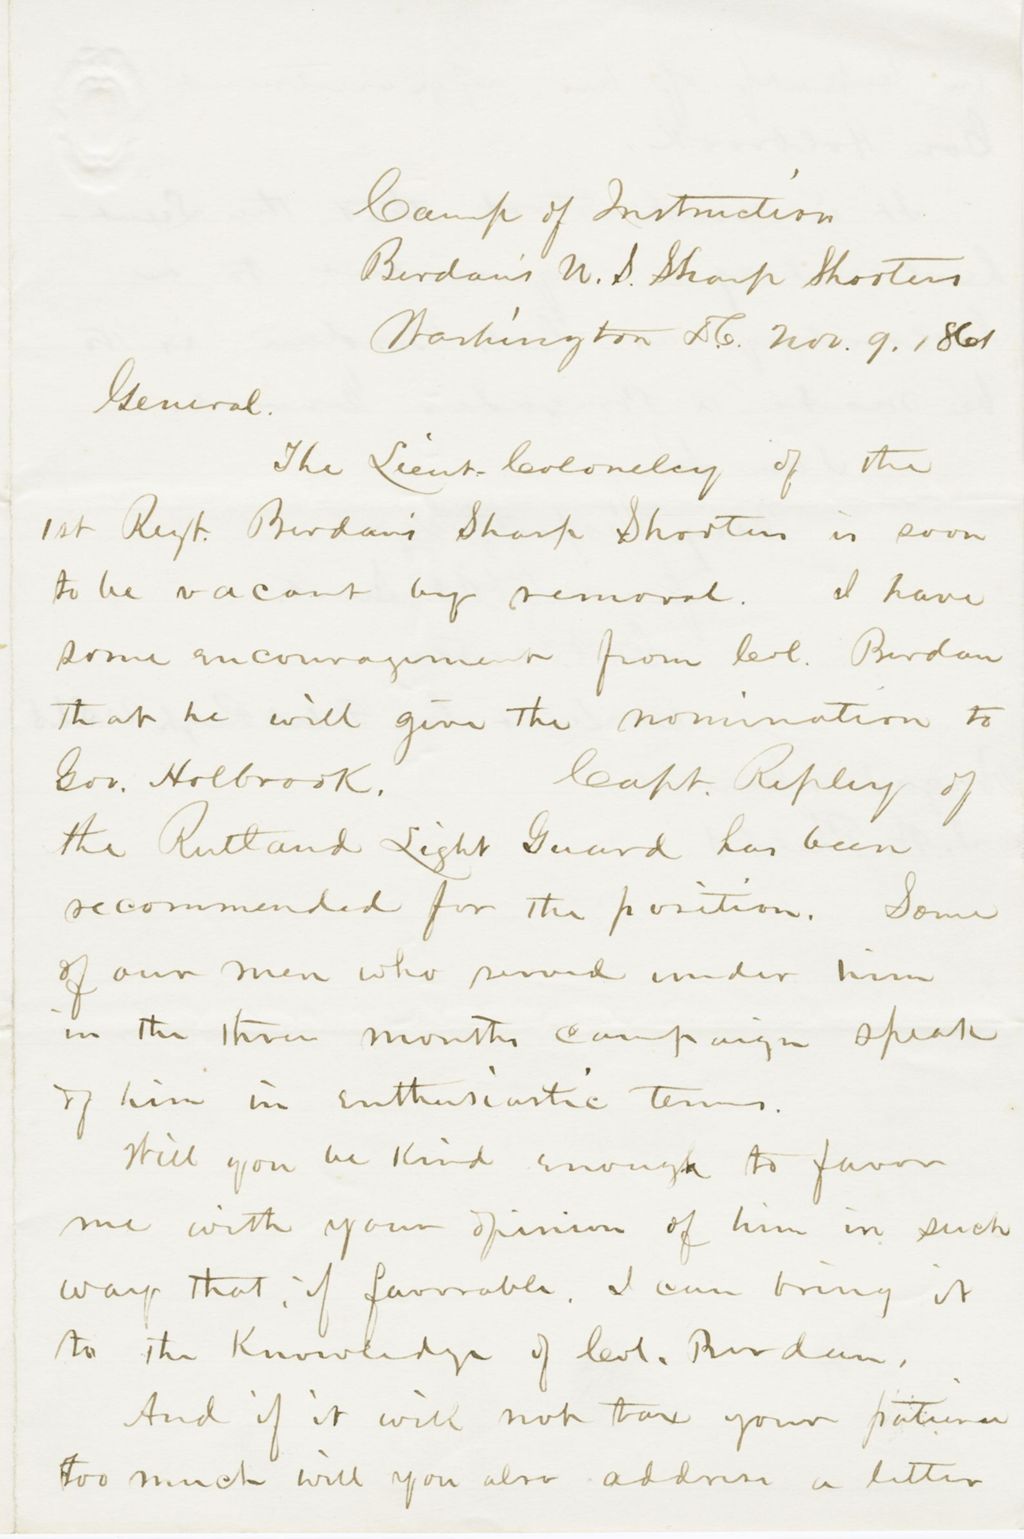 Camp of Instruction
Berdan's U.S. Sharp Shooters
Washington D.C. Nov. 9. 1861
General.
The Lieut. Colonelcy of the
1st Regt. Berdan's Sharp Shooters is soon
to be vacant by removal. I have
some encouragement from Col. Berdan
that he will give the nomination to
Gov. Holbrook. Capt. Ripley of
the Rutland Light Guard has been
recommended for the position. Some
of our men who served under him
in the three months campaign speak
of him in enthusiastic terms.
Will you be kind enough to favor
me with your opinion of him in such
way that, if favorable, I can bring it
to the knowledge of Col. Berdan.
And if it will not tax your patience
too much will you also address a letter